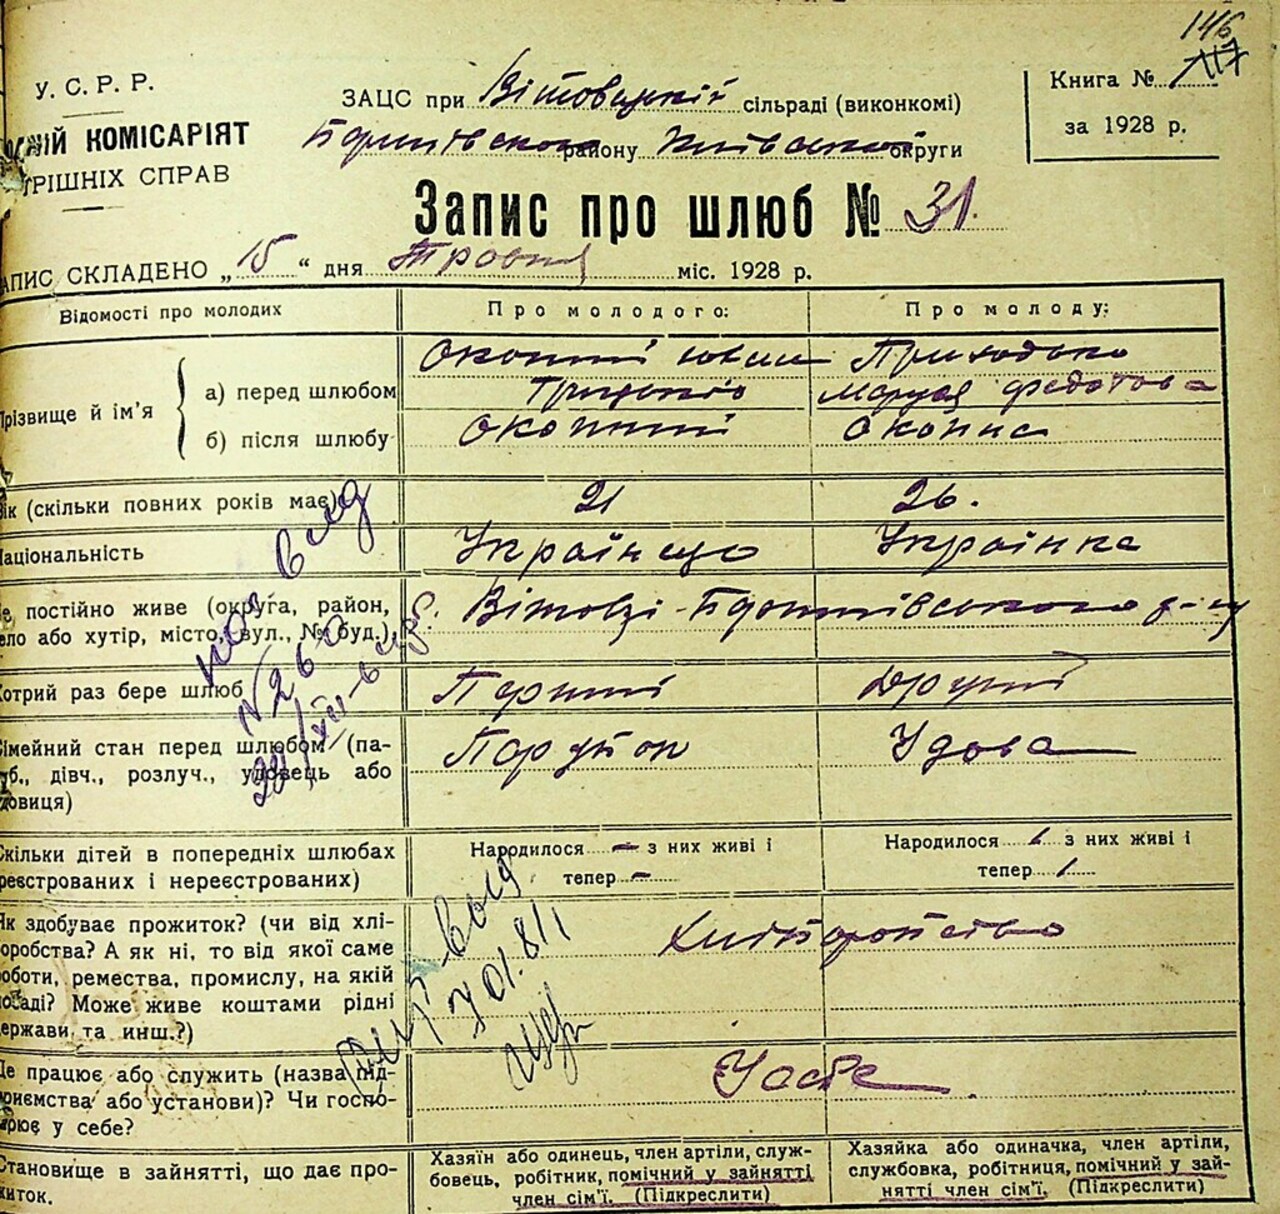 146
117
У. С. Р. Р.
КОМІСАРІЯТ
СПРАВ
ЗАЦС при Вітовецькій сільраді (виконкомі)
району Київської округи
Книга №
за 1928 р.
Запис про шлюб № 31.
ЗАПИС СКЛАДЕНО „15“ дня Травня міс. 1928 р.
Відомості про молодих
Про молодого:
Про молоду:
Прізвище й ім'я
а) перед шлюбом
Окопний Юхим Грицьків
Приходько Маруся Федотова
б) після шлюбу
Окопний
Окопна
Вік (скільки повних років має)
21
26.
Національність
Українець
Українка
Де постійно живе (округа, район,
село або хутір, місто, вул., № буд.)
Вітовці
Котрий раз бере шлюб
Перший
Другий
Сімейний стан перед шлюбом (па-
руб., дівч., розлуч., удовець або
удовиця)
Парубок
Удова
Скільки дітей в попередніх шлюбах
реєстрованих і нереєстрованих)
Народилося — з них живі і
тепер —
Народилося 1 з них живі і
тепер 1
Як здобуває прожиток? (чи від хлі-
боробства? А як ні, то від якої саме
роботи, ремества, промислу, на якій
посаді? Може живе коштами рідні
держави та инш.?)
Хліборобство
Де працює або служить (назва під-
приємства або установи)? Чи госпо-
дарює у себе?
У себе
Становище в зайнятті, що дає про-
житок.
Хазяїн або одинець, член артіли, служ-
бовець, робітник, помічний у зайнятті
член сім'ї. (Підкреслити)
Хазяйка або одиначка, член артіли,
службовка, робітниця, помічний у зай-
нятті член сім'ї. (Підкреслити)